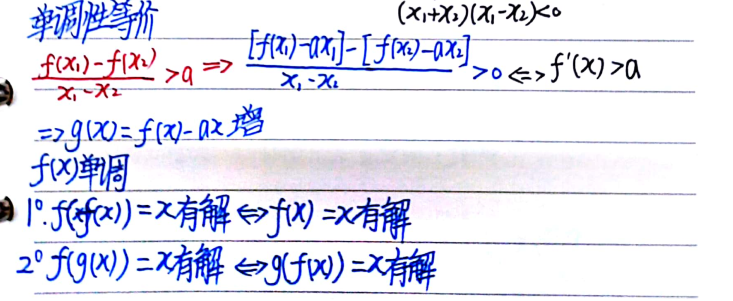 (x₁+x₂)(x₁-x₂)<0
单调性等价
\frac{f(x₁)-f(x₂)}{x₁-x₂}>a => \frac{[f(x₁)-ax₁]-[f(x₂)-ax₂]}{x₁-x₂}>0 <=> f'(x)>a
=> g(x)=f(x)-ax 增
f(x)单调
1°. f(f(x))=x有解<=>f(x)=x有解
2° f(g(x))=x有解<=>g(f(x))=x有解